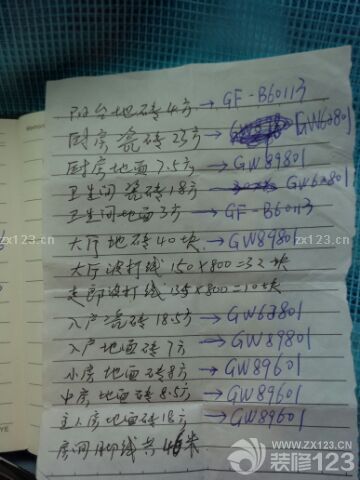 阳台地砖4方→GF-B60113
厨房瓷砖23方→GW63801
厨房地面7.5方→GW89801
卫生间瓷砖18方 GW63801
卫生间地面3方→GF-B60113
大厅地砖40块→GW89801
大厅波打线150×800=32块
走郎波打线135×800=10块
入户瓷砖18.5方→GW63801
入户地面砖7方→GW89801
小房地面砖8方→GW89601
中房地面砖8.5方→GW89601
主人房地面砖18方→GW89601
房间脚线共46米
zx123.cn
WWW.ZX123.CN
装修123